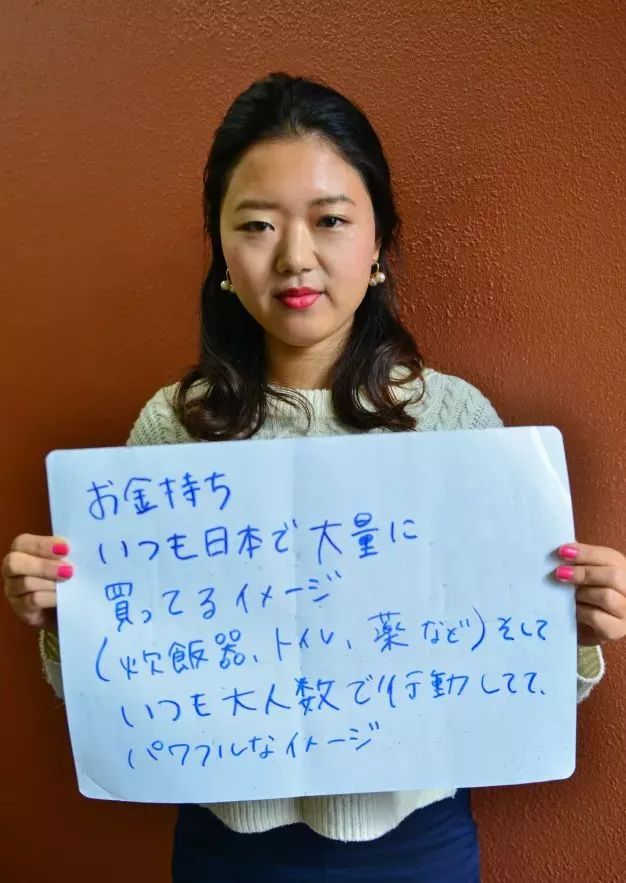 お金持ち
いつも日本で大量に
買ってるイメージ
(炊飯器、トイレ、薬など)そして
いつも大人数で行動してて、
パワフルなイメージ